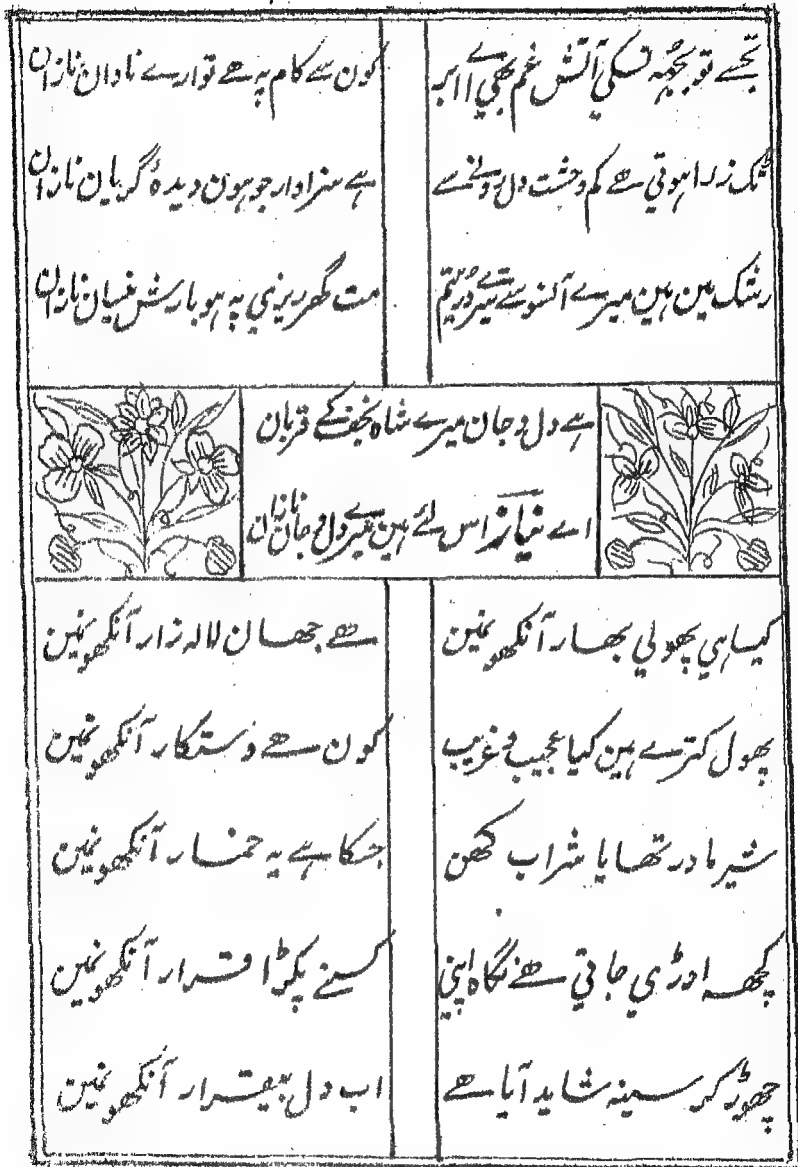 تجسے تو بجھ نہ سکي آتش غم بھي اے ابر
کون سے کام پہ ھے تو ارے نادان نازان
ٹک زرا ہوتي ھے کم وحشت دل رونے سے
ہے سزاوار جو ہون دیدۂ گریان نازان
رشک مین ہین میرے آنسو سے تیرے در یتیم
مت گھر ریزي پہ ہو بارش نیسان نازان
ہے دل و جان میرے شاہ نجف کے قربان
اے نیاز اس لئے ہین میرے دل و جان نازان
کیا ہي پھولي بھار آنکھو نمین
ھے جھان لالہ زار آنکھو نمین
پھول کترے ہین کیا عجیب و غریب
کون ھے دستکار آنکھو نمین
شیر مادر تھا یا شراب کھن
جسکا ہے یہ خمار آنکھو نمین
کچھہ اوڑي جاتي ھے نگاہ اپني
کسنے پکڑا قرار آنکھو نمین
چھوڑ کر سینہ شاید آیا ھے
اب دل بیقرار آنکھو نمین